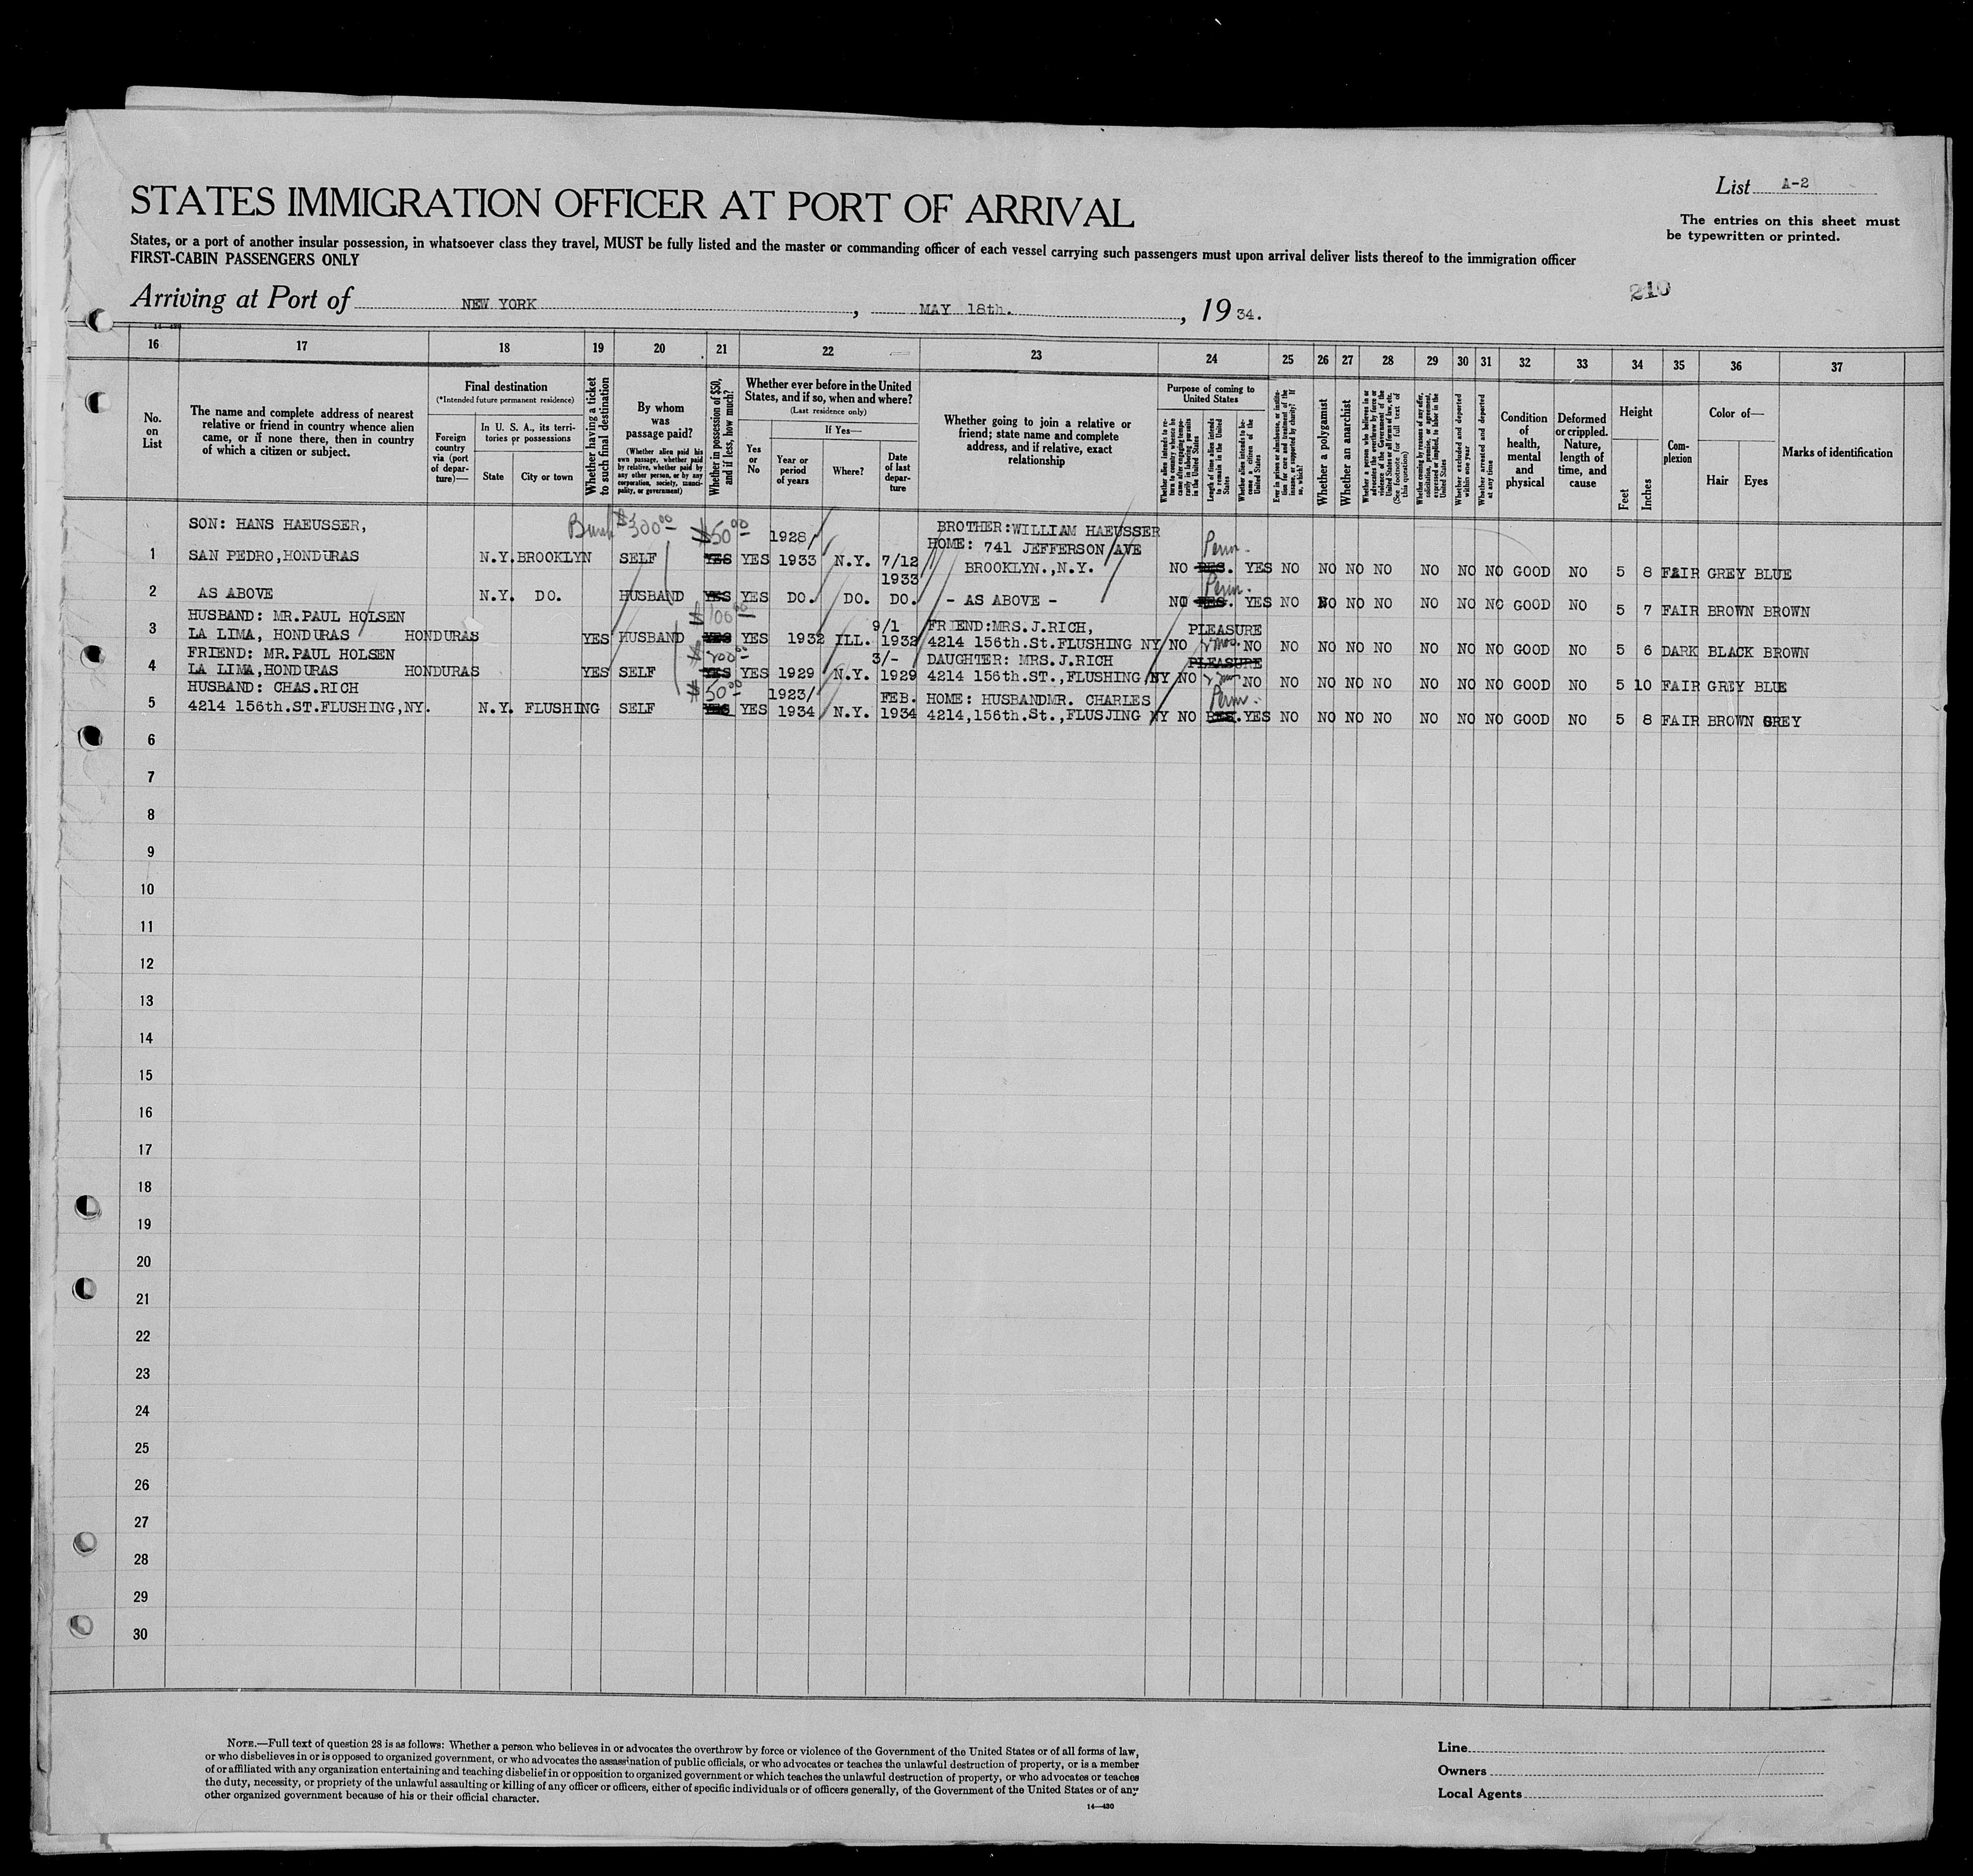 List A-2
STATES IMMIGRATION OFFICER AT PORT OF ARRIVAL
The entries on this sheet must
be typewritten or printed.
States, or a port of another insular possession, in whatsoever class they travel, MUST be fully listed and the master or commanding officer of each vessel carrying such passengers must upon arrival deliver lists thereof to the immigration officer
FIRST-CABIN PASSENGERS ONLY
210
Arriving at Port of NEW YORK, MAY 18th., 19 34.
16 17 18 19 20 21 22 23 24 25 26 27 28 29 30 31 32 33 34 35 36 37
No.
on
List
The name and complete address of nearest
relative or friend in country whence alien
came, or if none there, then in country
of which a citizen or subject.
Final destination
(*Intended future permanent residence)
Foreign
country
via (port
of depar-
ture)—
In U. S. A., its terri-
tories or possessions
State City or town
Whether having a ticket
to such final destination
By whom
was
passage paid?
(Whether alien paid his
own passage, whether paid
by relative, whether paid by
any other person, or by any
corporation, society, munici-
pality, or government)
Whether in possession of $50,
and if less, how much?
Whether ever before in the United
States, and if so, when and where?
(Last residence only)
Yes
or
No
If Yes—
Year or
period
of years
Where?
Date
of last
depar-
ture
Whether going to join a relative or
friend; state name and complete
address, and if relative, exact
relationship
Purpose of coming to
United States
Whether alien intends to re-
turn to country whence he
came after engaging tempo-
rarily in laboring pursuits
in the United States
Length of time alien intends
to remain in the United
States
Whether alien intends to be-
come a citizen of the
United States
Ever in prison or almshouse, or institu-
tion for care and treatment of the
insane, or supported by charity? If
so, which?
Whether a polygamist
Whether an anarchist
Whether a person who believes in or
advocates the overthrow by force or
violence of the Government of the
United States or all forms of law, etc.
(See footnote for full text of
this question)
Whether coming by reason of any offer,
solicitation, promise, or agreement,
expressed or implied, to labor in the
United States
Whether excluded and deported
within one year
Whether arrested and deported
at any time
Condition
of
health,
mental
and
physical
Deformed
or crippled.
Nature,
length of
time, and
cause
Height
Feet Inches
Com-
plexion
Color of—
Hair Eyes
Marks of identification
SON: HANS HAEUSSER, $300.00 $50.00 1928/ BROTHER:WILLIAM HAEUSSER
HOME: 741 JEFFERSON AVE Perm.
1 SAN PEDRO,HONDURAS N.Y.BROOKLYN SELF YES YES 1933 N.Y. 7/12 BROOKLYN.,N.Y. NO RES. YES NO NO NO NO NO NO NO GOOD NO 5 8 FAIR GREY BLUE
1933 Perm.
2 AS ABOVE N.Y. DO. HUSBAND YES YES DO. DO. DO. - AS ABOVE - NO RES. YES NO NO NO NO NO NO NO GOOD NO 5 7 FAIR BROWN BROWN
HUSBAND: MR.PAUL HOLSEN $100.00 9/1 FRIEND:MRS.J.RICH, PLEASURE
3 LA LIMA, HONDURAS HONDURAS YES HUSBAND YES YES 1932 ILL. 1932 4214 156th.St.FLUSHING NY NO 2 mos. NO NO NO NO NO NO NO NO GOOD NO 5 6 DARK BLACK BROWN
FRIEND: MR.PAUL HOLSEN $200.00 3/- DAUGHTER: MRS.J.RICH PLEASURE
4 LA LIMA,HONDURAS HONDURAS YES SELF YES YES 1929 N.Y. 1929 4214 156th.ST.,FLUSHING NY NO NO NO NO NO NO NO NO NO GOOD NO 5 10 FAIR GREY BLUE
HUSBAND: CHAS.RICH $50.00 1923/ FEB. HOME: HUSBANDMR. CHARLES Perm.
5 4214 156th.ST.FLUSHING,NY. N.Y. FLUSHING SELF YES YES 1934 N.Y. 1934 4214,156th.St.,FLUSJING NY NO RES. YES NO NO NO NO NO NO NO GOOD NO 5 8 FAIR BROWN GREY
6
7
8
9
10
11
12
13
14
15
16
17
18
19
20
21
22
23
24
25
26
27
28
29
30
NOTE.—Full text of question 28 is as follows: Whether a person who believes in or advocates the overthrow by force or violence of the Government of the United States or of all forms of law,
or who disbelieves in or is opposed to organized government, or who advocates the assassination of public officials, or who advocates or teaches the unlawful destruction of property, or is a member
of or affiliated with any organization entertaining and teaching disbelief in or opposition to organized government or which teaches the unlawful destruction of property, or who advocates or teaches
the duty, necessity, or propriety of the unlawful assaulting or killing of any officer or officers, either of specific individuals or of officers generally, of the Government of the United States or of any
other organized government because of his or their official character.
14—430
Line
Owners
Local Agents